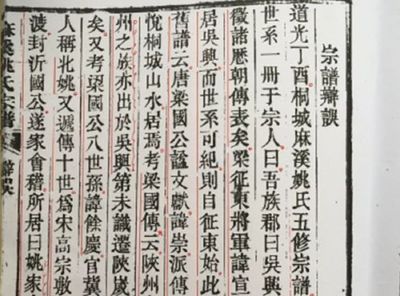 宗譜辯誤
道光丁酉桐城麻溪姚氏五修宗譜
世系一冊于宗人曰吾族郡曰吳興
徵諸歷朝傳表矣梁征東將軍諱宣
居吳興而世系可絶則自征東始此
舊譜云唐梁國公諡文獻諱崇派傳
悅桐城山水居焉考梁國傳云陝州
州之族亦出於吳興第未識遷陝
矣又考梁國公八世孫諱餘慶官冀
人稱北姚又遞傳十世為宋高宗敕
渡封沂國公遂家會稽所居曰姚家
麻溪姚氏宗譜